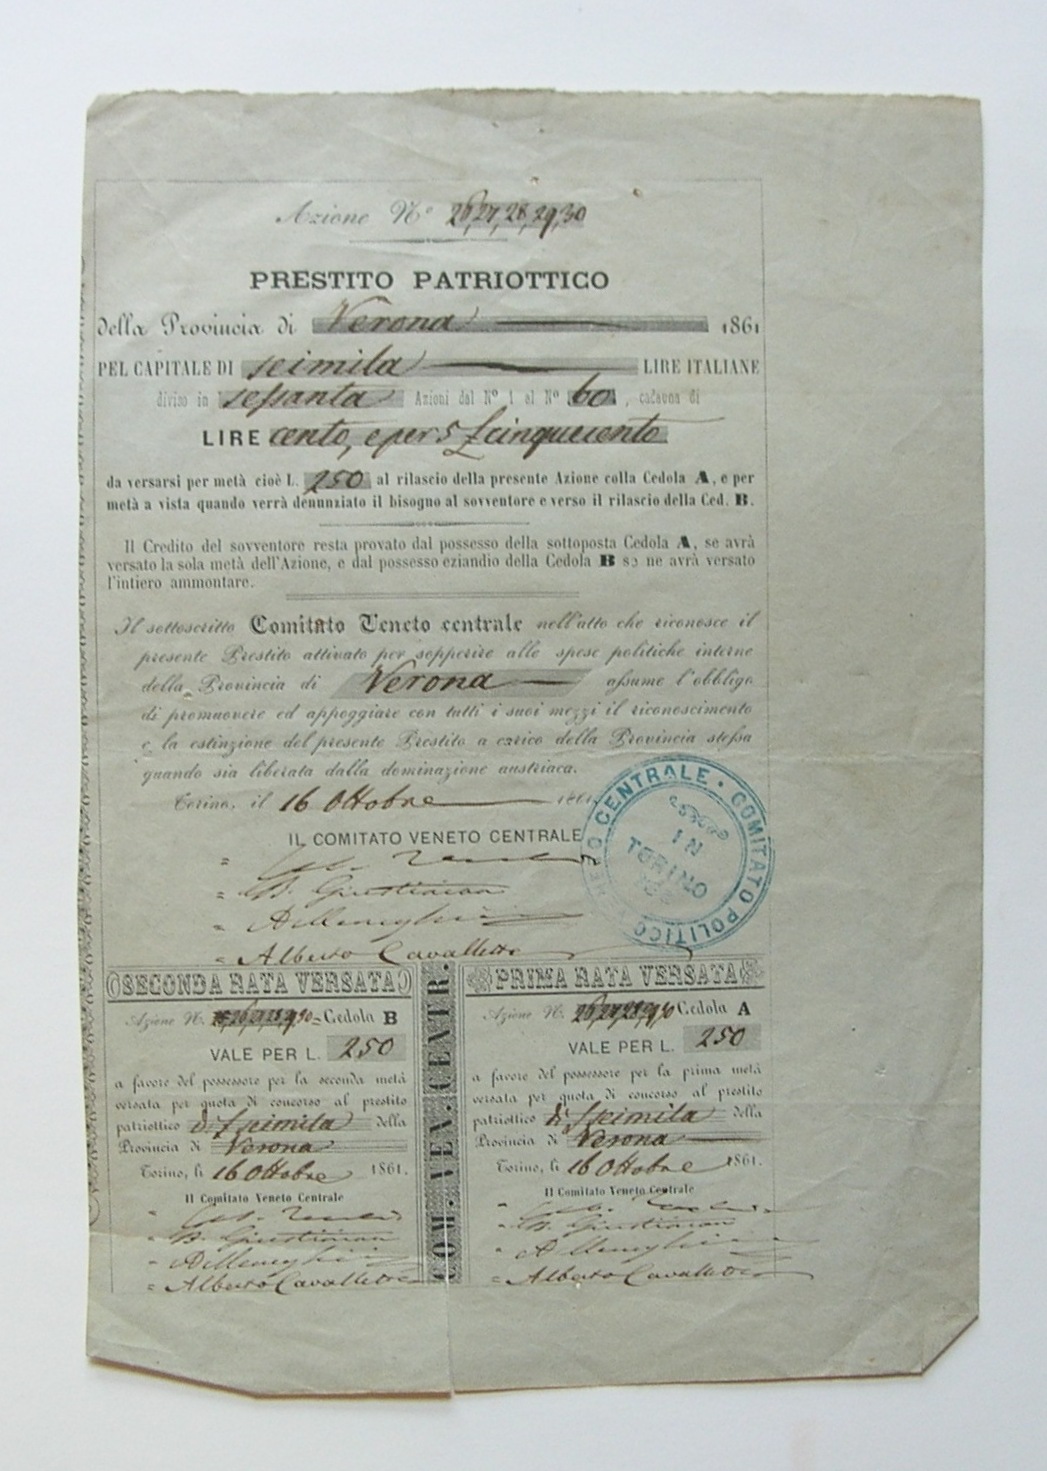 Azione Nº 26, 27, 28, 29, 30
PRESTITO PATRIOTTICO
della Provincia di Verona 1861
PEL CAPITALE DI seimila LIRE ITALIANE
diviso in sessanta Azioni dal Nº 1 al Nº 60, cadauna di
LIRE cento, e per 5 £ cinquecento
da versarsi per metà cioè L. 250 al rilascio della presente Azione colla Cedola A, e per
metà a vista quando verrà denunziato il bisogno al sovventore e verso il rilascio della Ced. B.
Il Credito del sovventore resta provato dal possesso della sottoposta Cedola A, se avrà
versato la sola metà dell'Azione, e dal possesso eziandio della Cedola B se ne avrà versato
l'intiero ammontare.
Il sottoscritto Comitato Veneto centrale nell'atto che riconosce il
presente Prestito attivato per sopperire alle spese politiche interne
della Provincia di Verona assume l'obbligo
di promuovere ed appoggiare con tutti i suoi mezzi il riconoscimento
e la estinzione del presente Prestito a carico della Provincia stessa
quando sia liberata dalla dominazione austriaca.
Torino, il 16 Ottobre 1861
IL COMITATO VENETO CENTRALE
COMITATO POLITICO VENETO CENTRALE
IN
TORINO
" G. B. Giustinian
" A Meneghini
" Alberto Cavalletto
SECONDA RATA VERSATA
Azione N. 26 27 28 29 30 = Cedola B
VALE PER L. 250
a favore del possessore per la seconda metà
versata per quota di concorso al prestito
patriottico di Seimila della
Provincia di Verona
Torino, li 16 Ottobre 1861.
Il Comitato Veneto Centrale
" G. B. Giustinian
" A Meneghini
" Alberto Cavalletto
COM. VEN. CENTR.
PRIMA RATA VERSATA
Azione N. 26 27 28 29 30 Cedola A
VALE PER L. 250
a favore del possessore per la prima metà
versata per quota di concorso al prestito
patriottico di Seimila della
Provincia di Verona
Torino, li 16 Ottobre 1861.
Il Comitato Veneto Centrale
" G. B. Giustinian
" A Meneghini
" Alberto Cavalletto